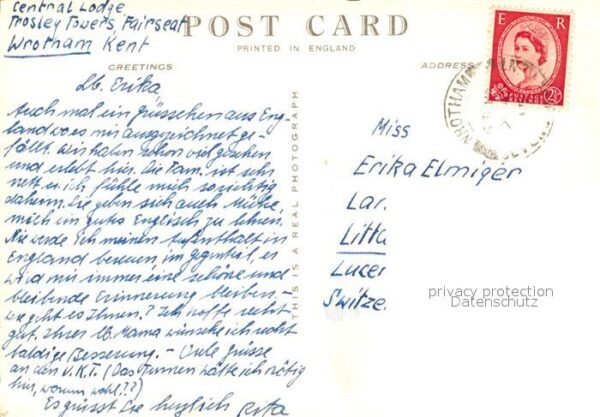 Central Lodge
Trosley Towers, Fairseat
Wrotham Kent
POST CARD
PRINTED IN ENGLAND
GREETINGS
ADDRESS
E R
2½
POSTAGE REVENUE
WROTHAM
SEVEN
Lb. Erika,
Auch mal ein Grüsschen aus Eng-
land wo es mir ausgezeichnet ge-
fällt. Wir haben schon viel gesehen
und erlebt hier. Die Fam. ist sehr
nett u. ich fühle mich so richtig
daheim. Sie geben sich auch Mühe,
mich ein gutes Englisch zu lehren.
Nie werde ich meinen Aufenthalt in
England bereuen, im gegenteil, es
wird mir immer eine schöne und
bleibende Erinnerung bleiben. –
wie geht es Ihnen? Ich hoffe recht
gut. Ihrer lb. Mama wünsche ich recht
baldige Besserung. – Viele Grüsse
an den V.K.T. (Das Turnen hätte ich nötig
hier, warum wohl??)
Es grüsst Sie herzlich Rita
THIS IS A REAL PHOTOGRAPH
Miss
Erika Elmiger
Lar.
Litta
Lucer
Switze.
privacy protection
Datenschutz